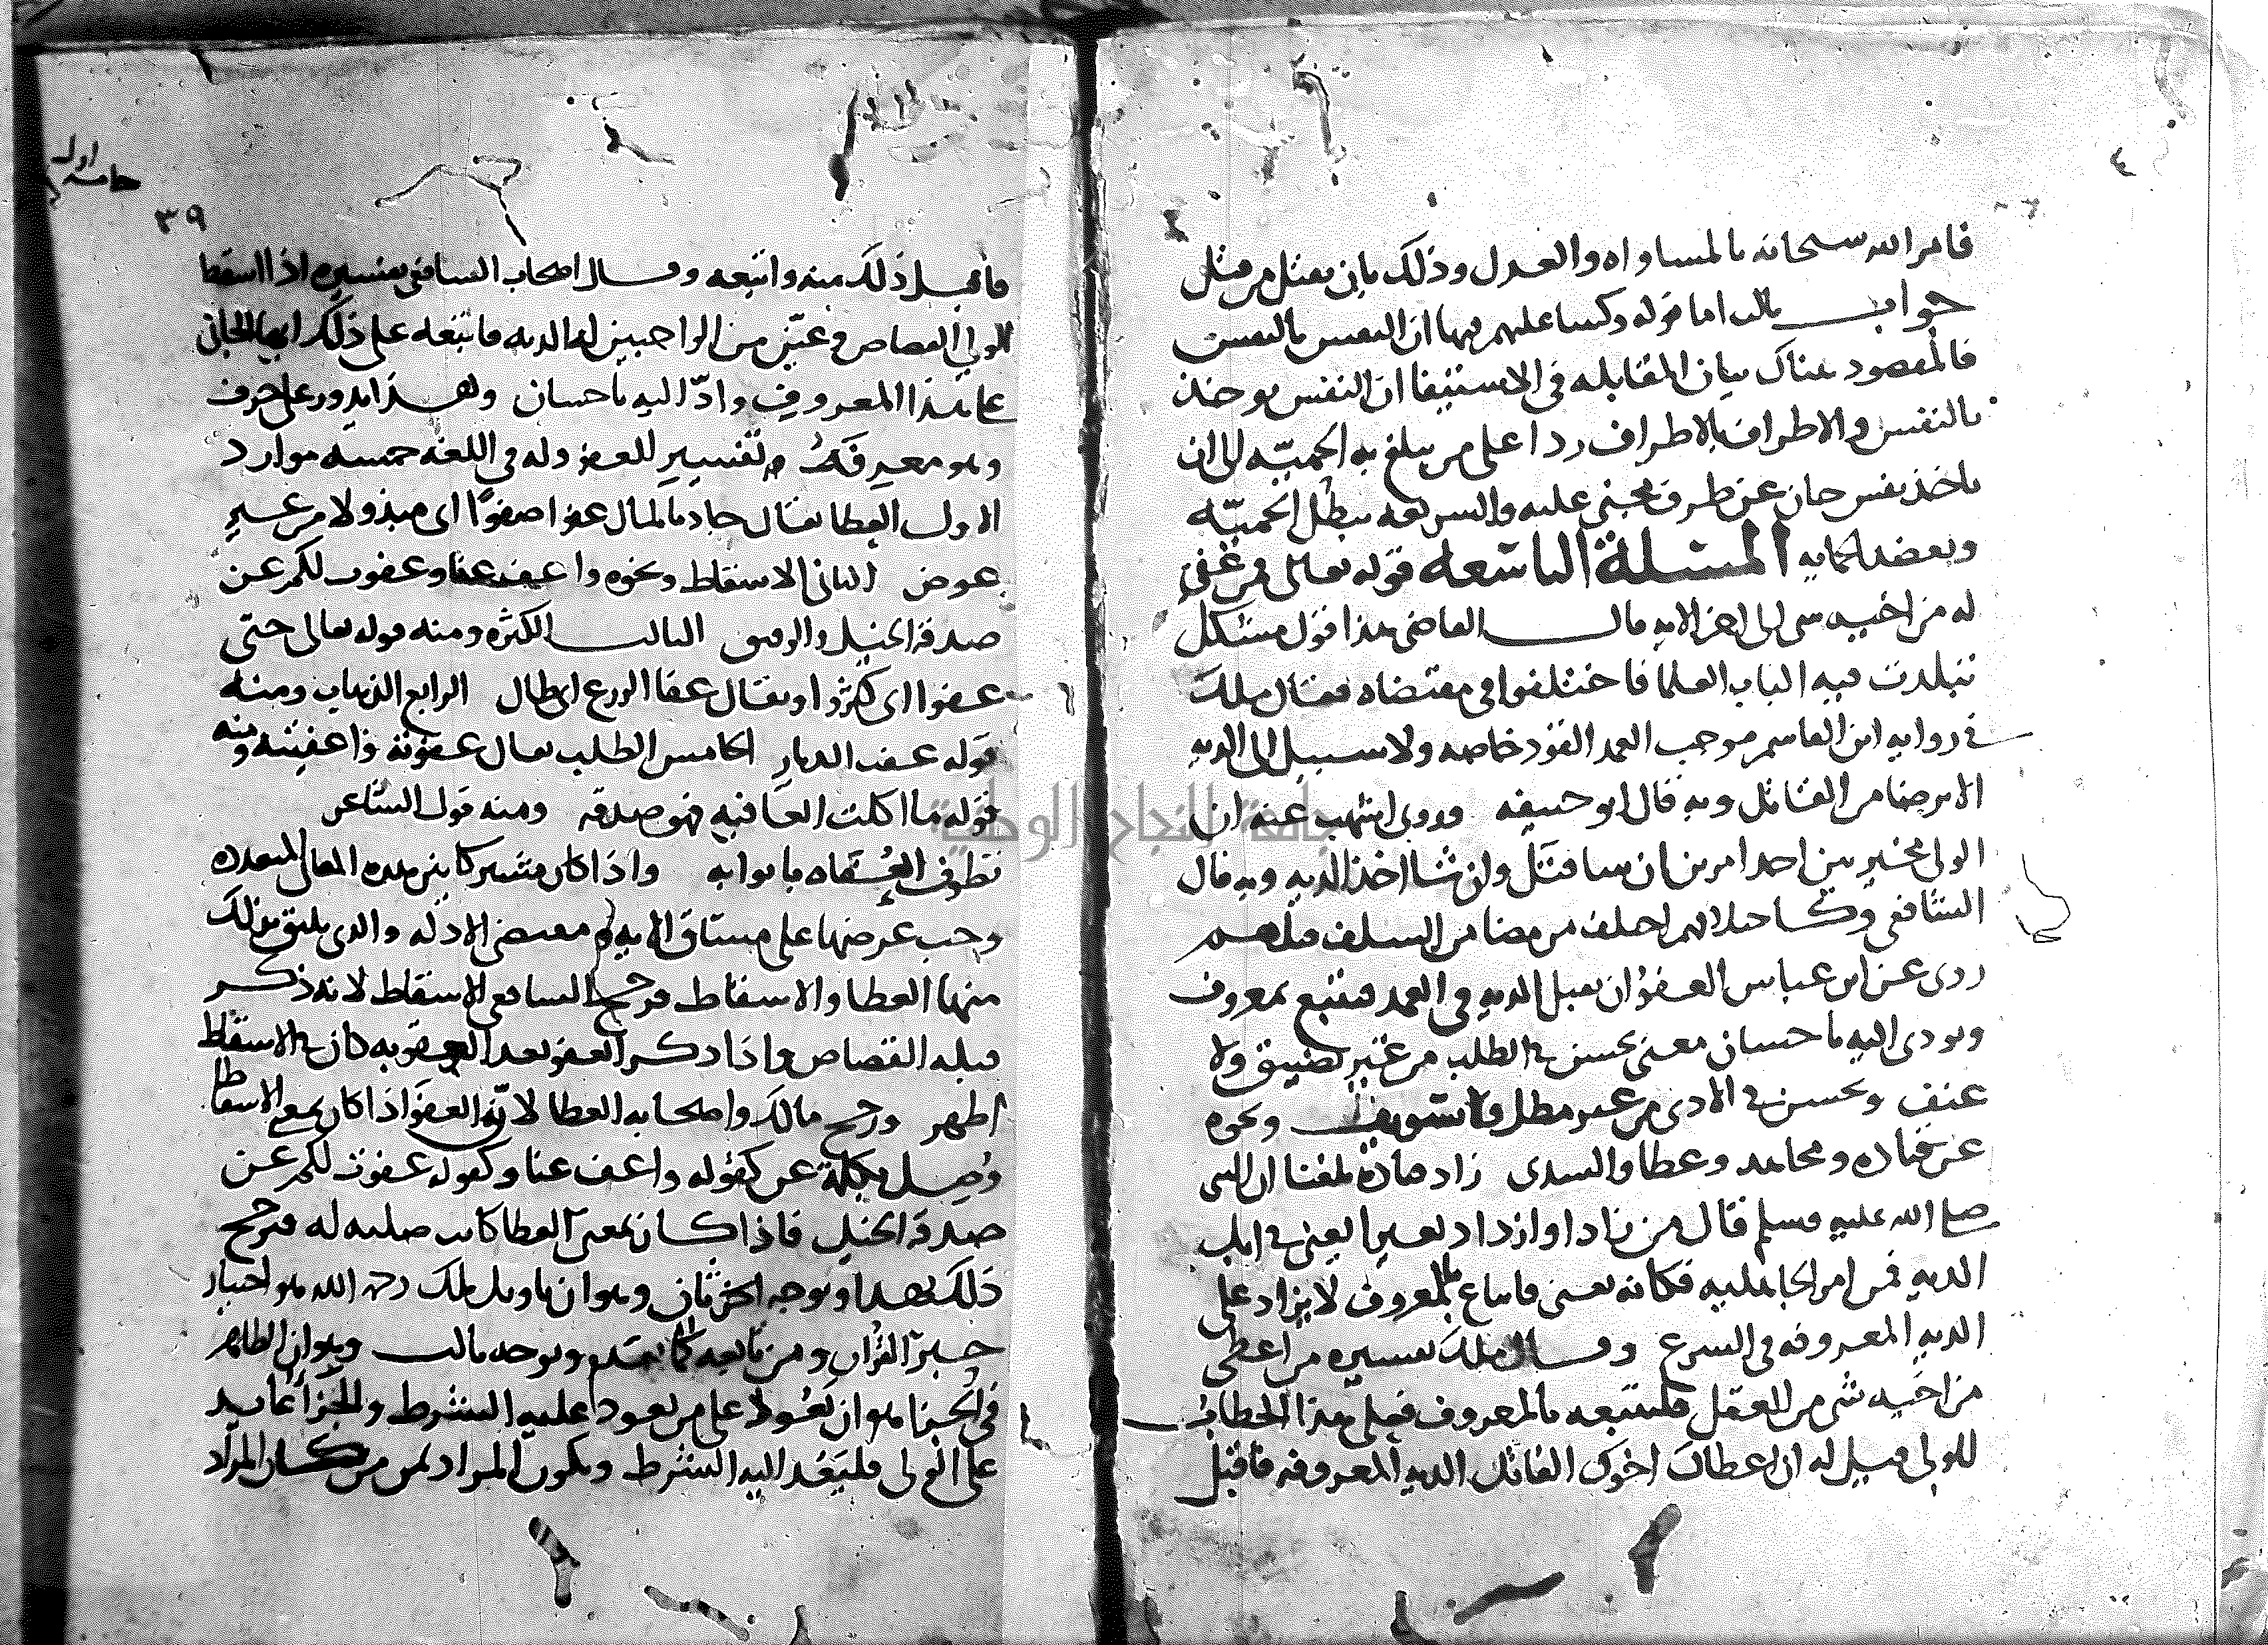 فامر الله سبحانه بالمساواه والعدل وذلك بان يقتل من قتل
جواب ثالث اما قوله وكتبنا عليهم فيها ان النفس بالنفس
فالمقصود هناك بيان المقابله في الاستيفا ان النفس توخذ
بالنفس والاطراف بالاطراف ردا على من تبلغ به الحميّه الى ان
ياخذ نفس جان عن طرف مجني عليه والشريعه تبطل الحميّه
وتعضد الحمايه المسلة التاسعه قوله تعالى فمن عُفي
له من اخيه شي الى اخر الايه قال القاضي هذا قول مشكل
تبلدت فيه الباب العلما فاختلفوا في مقتضاه فقال ملك
في روايه ابن القاسم موجب العمد القود خاصه ولا سبيل الى الديه
الا برضا من القاتل وبه قال ابو حنيفه وروى اشهب عنه ان
الولي مخير بين احد امرين ان شا قتل وان شا اخذ الديه وبه قال
الشافعي وكما اختلافهم اختلف من مضا من السلف قبلهم
روى عن ابن عباس العفو ان تقبل الديه في العمد فيتبع بمعروف
وتودى اليه باحسان معنى يحسن في الطلب من غير تضييق ولا
عنف ويحسن في الادى من غير مطل ولا تسويف ونحوه
عن قتاده ومجاهد وعطا والسدى زاد قتادة بلغنا ان النبي
صلى الله عليه وسلم قال من زاد او ازداد بعيرا يعني في ابل
الديه فمن امر الجاهليه فكانه يعني فاتباع بالمعروف لا يزاد على
الديه المعروفه في الشرع وقال ملك تفسيره من اعطي
من اخيه شي من العقل فليتبعه بالمعروف فعلى هذا الخطاب
للولي قيل له ان اعطاك اخوك القاتل الديه المعروفه فاقبل
اول
خامسه
٣٩
فاقبل ذلك منه واتبعه وقال اصحاب الشافعي تفسيره اذا اسقط
الولي القصاص وعيّن من الواجبين له الديه فاتبعه على ذلك ايها الجاني
على هذا المعروف وادّ اليه باحسان وهذا يدور على حرف
وهو معرفة تفسير العفو وله في اللغه خمسه موارد
الاول العطا يقال جاد بالمال عفوا صفوًا اى مبذولا من غير
عوض الثاني الاسقاط ونحوه واعف عنا وعفوت لكم عن
صدقة الخيل والرقيق الثالث الكثره ومنه قوله تعالى حتى
عفوا اى كثروا ويقال عفا الزرع اى طال الرابع الذهاب ومنه
قوله عفت الديار الخامس الطلب يقال عفوته واعفيته ومنه
قوله ما اكلت العافيه فهو صدقه ومنه قول الشاعر
تطوف العُفاه بابوابه واذا كان مشتركا بين هذه المعاني المتعدده
وجب عرضها على مساق الايه ومقتضى الادله والذى يليق بذلك
منها العطا والاسقاط فرجح الشافعي الاسقاط لانه ذكر
قبله القصاص واذا ذكر العفو بعد العقوبه كان في الاسقاط
اظهر ورجح مالك واصحابه العطا لانّ العفو اذا كان بمعنى الاسقاط
وُصِل بكلمة عن كقوله واعف عنا وكقوله عفوت لكم عن
صدقة الخيل فاذا كان بمعنى العطا كانت صلته له فترجح
ذلك بهذا وبوجه اخر ثان وهو ان تاويل ملك رحمه الله هو اختيار
حبر القران ومن تابعه كما تقدم وبوجه ثالث وهو ان الظاهر
في الجزا هو ان يَعُود على من يعود عليه الشرط والجزا عايد
على الولي فليَعُد اليه الشرط ويكون المراد بمن من كان المراد